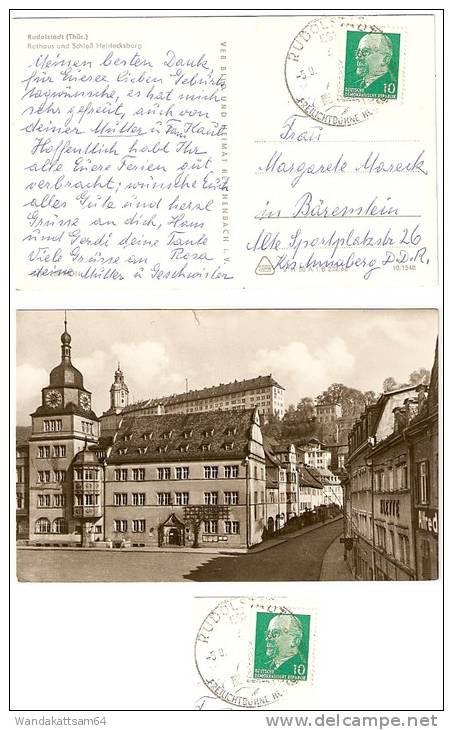 Rudolstadt (Thür.)
Rathaus und Schloß Heidecksburg
Meinen besten Dank
für Euere lieben Geburts
tagwünsche, es hat mich
sehr gefreut, auch von
deiner Mutter u Fam
Hoffentlich habt Ihr
alle Euere Ferien gut
verbracht; wünsche Euch
alles Gute und herzl
Grüsse an dich, Hans
und Gerdi deine Tante
Viele Grüsse an Rosa
deine Mutter u Geschwister
VEB BILD UND HEIMAT REICHENBACH I. V.
RUDOLSTADT
FREILICHTBÜHNE
10
DEUTSCHE
DEMOKRATISCHE REPUBLIK
Frau
Margarete Mareck
in Bärenstein
Alte Sportplatzstr 26
Krs Annaberg D.D.R.
10/1548
RUDOLSTADT
FREILICHTBÜHNE
10
DEUTSCHE
DEMOKRATISCHE REPUBLIK
Wandakattsam64
www.delcampe.net